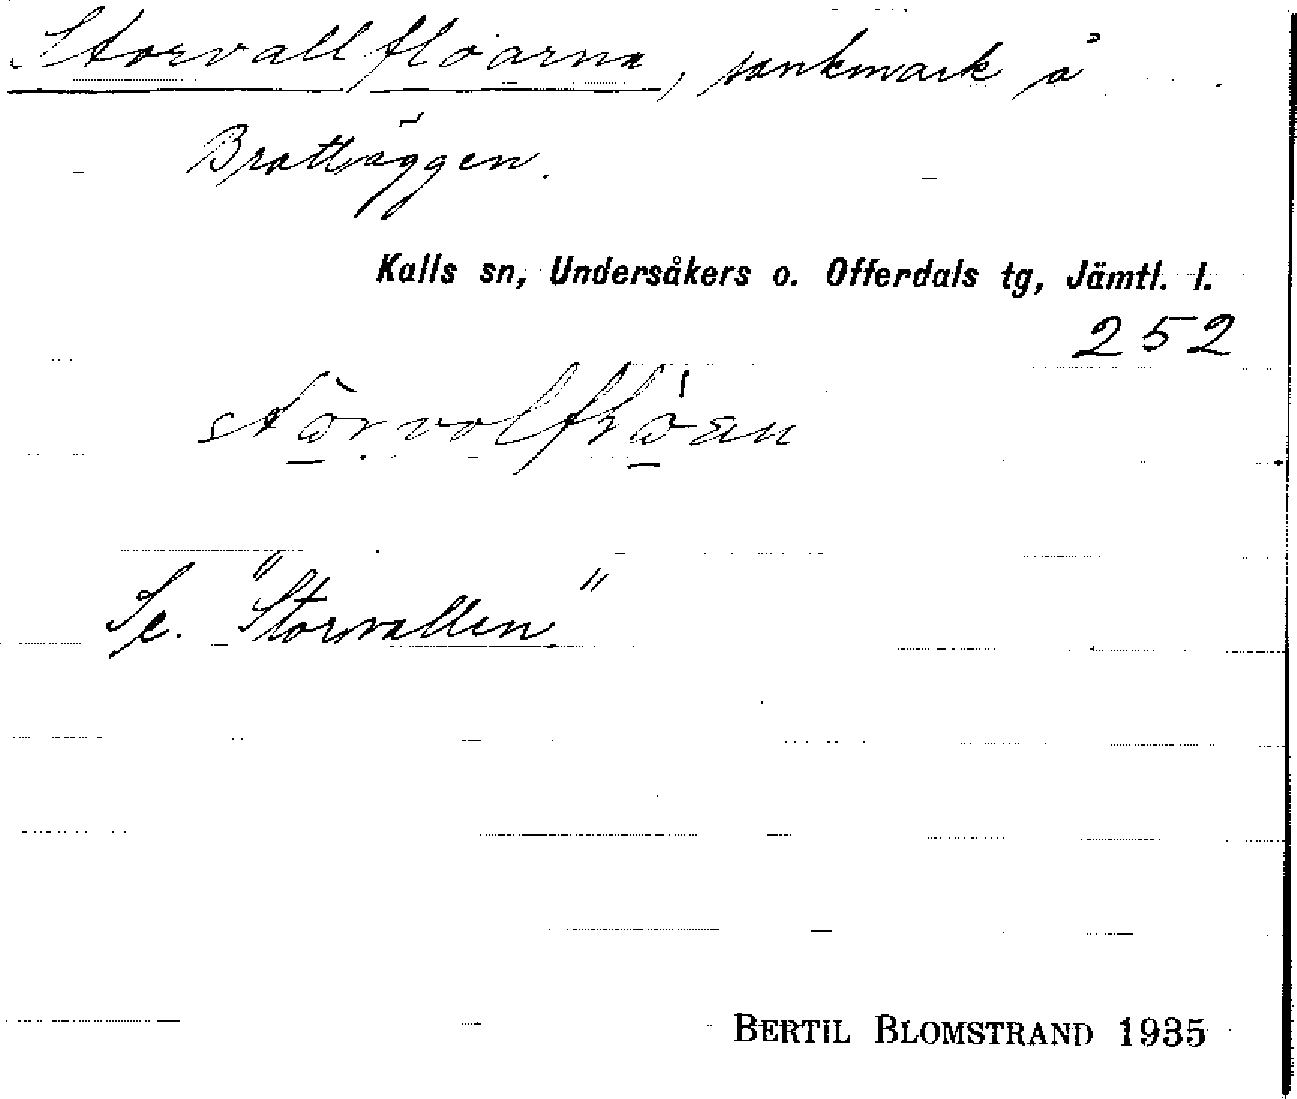 Storvallflöarna, sankmark å
Brattväggen.
Kalls sn, Undersåkers o. Offerdals tg, Jämtl. l.
252
Se. "Storvallen"
BERTIL BLOMSTRAND 1935